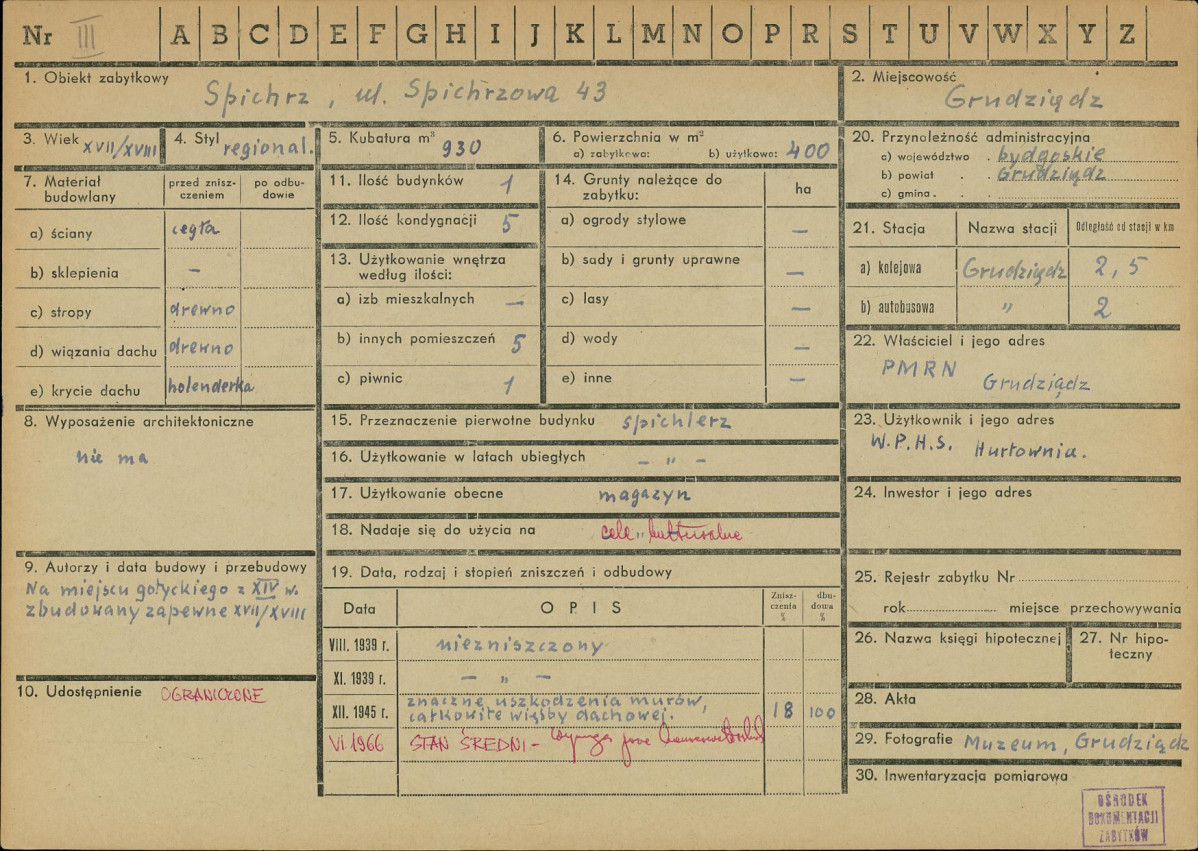 Nr III A B C D E F G H I J K L M N O P R S T U V W X Y Z
1. Obiekt zabytkowy Spichrz, ul. Spichrzowa 43
2. Miejscowość Grudziądz
3. Wiek XVII/XVIII
4. Styl regional.
5. Kubatura m³ 930
6. Powierzchnia w m²
a) zabytkowa: b) użytkowa: 400
20. Przynależność administracyjna
a) województwo bydgoskie
b) powiat Grudziądz
c) gmina
7. Materiał budowlany
przed zniszczeniem
po odbudowie
a) ściany cegła
b) sklepienia –
c) stropy drewno
d) wiązania dachu drewno
e) krycie dachu holenderka
11. Ilość budynków 1
12. Ilość kondygnacji 5
13. Użytkowanie wnętrza
według ilości:
a) izb mieszkalnych –
b) innych pomieszczeń 5
c) piwnic 1
14. Grunty należące do
zabytku: ha
a) ogrody stylowe –
b) sady i grunty uprawne –
c) lasy –
d) wody –
e) inne –
21. Stacja Nazwa stacji Odległość od stacji w km
a) kolejowa Grudziądz 2,5
b) autobusowa " 2
22. Właściciel i jego adres
PMRN
Grudziądz
8. Wyposażenie architektoniczne
nie ma
15. Przeznaczenie pierwotne budynku spichlerz
16. Użytkowanie w latach ubiegłych – " –
17. Użytkowanie obecne magazyn
18. Nadaje się do użycia na cele kulturalne
23. Użytkownik i jego adres
W.P.H.S. Hurtownia.
24. Inwestor i jego adres
9. Autorzy i data budowy i przebudowy
Na miejscu gotyckiego z XIV w.
zbudowany zapewne XVII/XVIII
10. Udostępnienie OGRANICZONE
19. Data, rodzaj i stopień zniszczeń i odbudowy
Data OPIS Znisz-
czenia
% dbu-
dowa
%
VIII. 1939 r. niezniszczony
XI. 1939 r. – " –
XII. 1945 r. znaczne uszkodzenia murów,
całkowite więźby dachowej. 18 100
VI 1966 STAN ŚREDNI –
25. Rejestr zabytku Nr
rok miejsce przechowywania
26. Nazwa księgi hipotecznej
27. Nr hipo-
teczny
28. Akta
29. Fotografie Muzeum, Grudziądz
30. Inwentaryzacja pomiarowa
OŚRODEK
DOKUMENTACJI
ZABYTKÓW